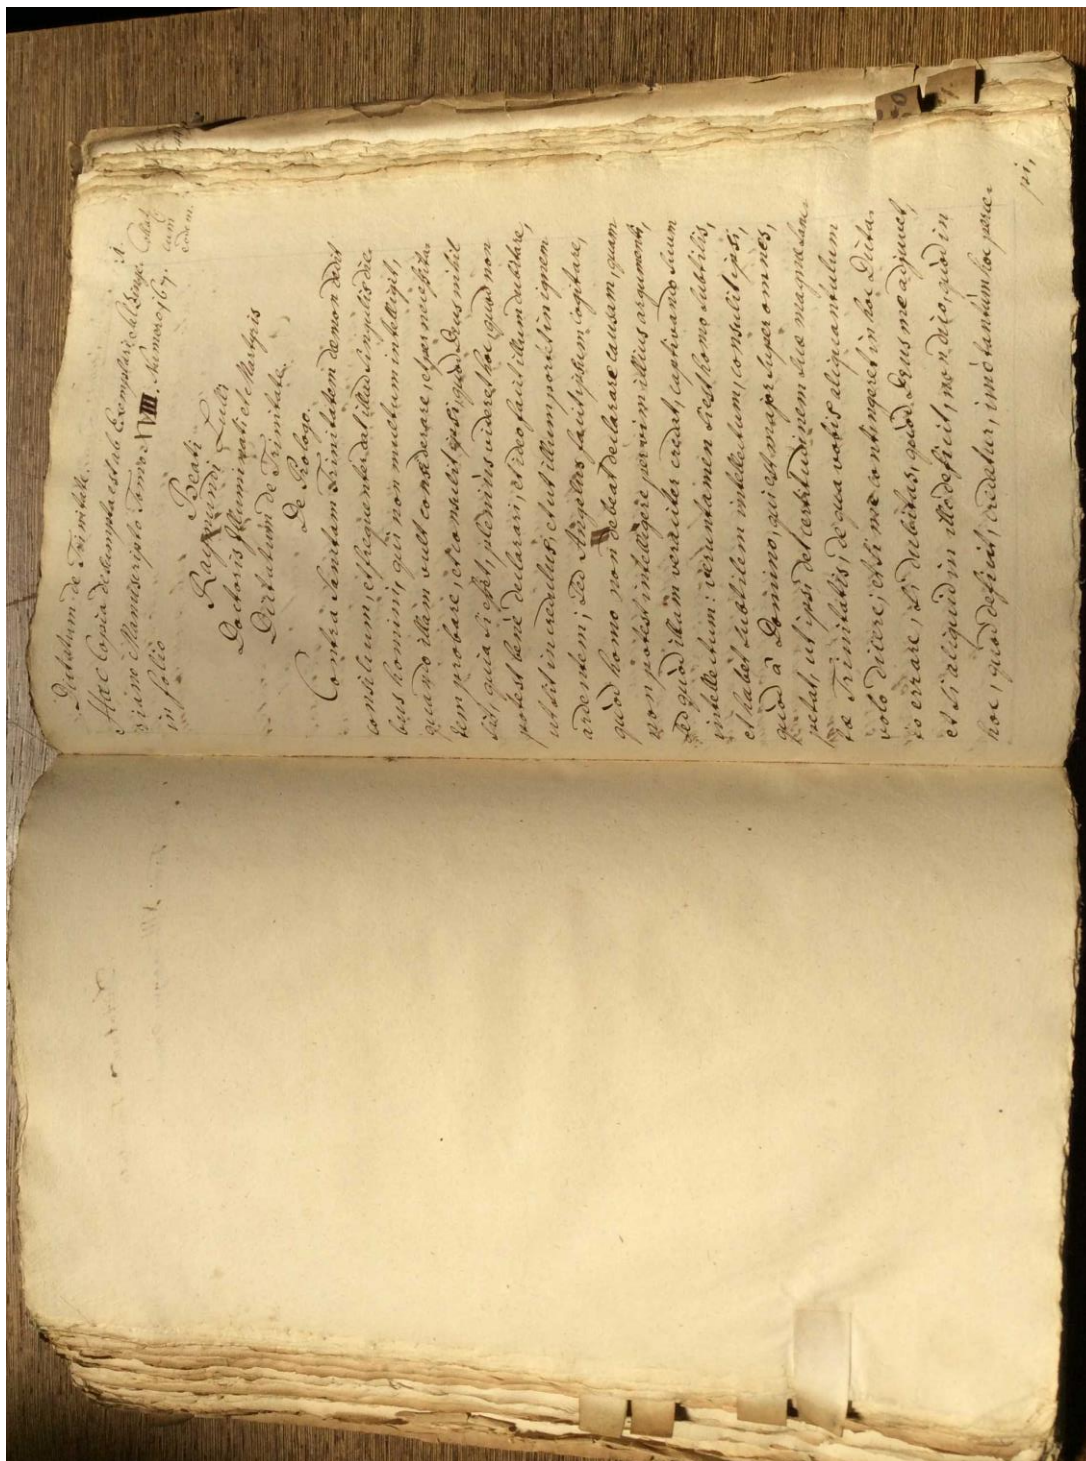 Dictatum de Trinitate. 1.
Hæc Copia desumpta est ab Exemplari Salzinge-
riano Manuscripto Tomo VIII. Numero 167.
in folio
eodem.
Beati
Raymundi Lulli
Doctoris Illuminati et Martyris
Dictatum de Trinitate.
De Prologo.
Contra Sanctam Trinitatem dæmon dedit
consilium, et frequenter dat illud singulis die-
bus homini, qui non multum intelligit,
quando illam vult considerare, et per necessita-
tem probare, et consulit ipsi, quod Deus nihil
sit, quia si esset, plenius videret hoc, quod non
potest bene declarari, et ideo facit illum dubitare,
ut sit incredulus, et ut illum portet in ignem
ardentem; sed Angelus facit ipsum cogitare,
quòd homo non debeat declarare causam, quam
non potest intelligere per vim illius argumenti,
sed quòd illam veraciter credat, captivando suum
intellectum: veruntamen si est homo subtilis,
et habet subtilem intellectum, consulit ipsi,
quòd à Domino, qui est major super omnes,
petat, ut ipsi det certitudinem suæ magnæ sanc-
tæ Trinitatis, de qua vobis aliquantulum
volo dicere; et si me contingeret in hoc Dicta-
to errare, si dubitas, quòd Deus me adjuvet,
et si aliquid in illo deficit, non dico, quòd in
hoc, quod deficit, credatur, imò tantùm hoc perci-
pi,